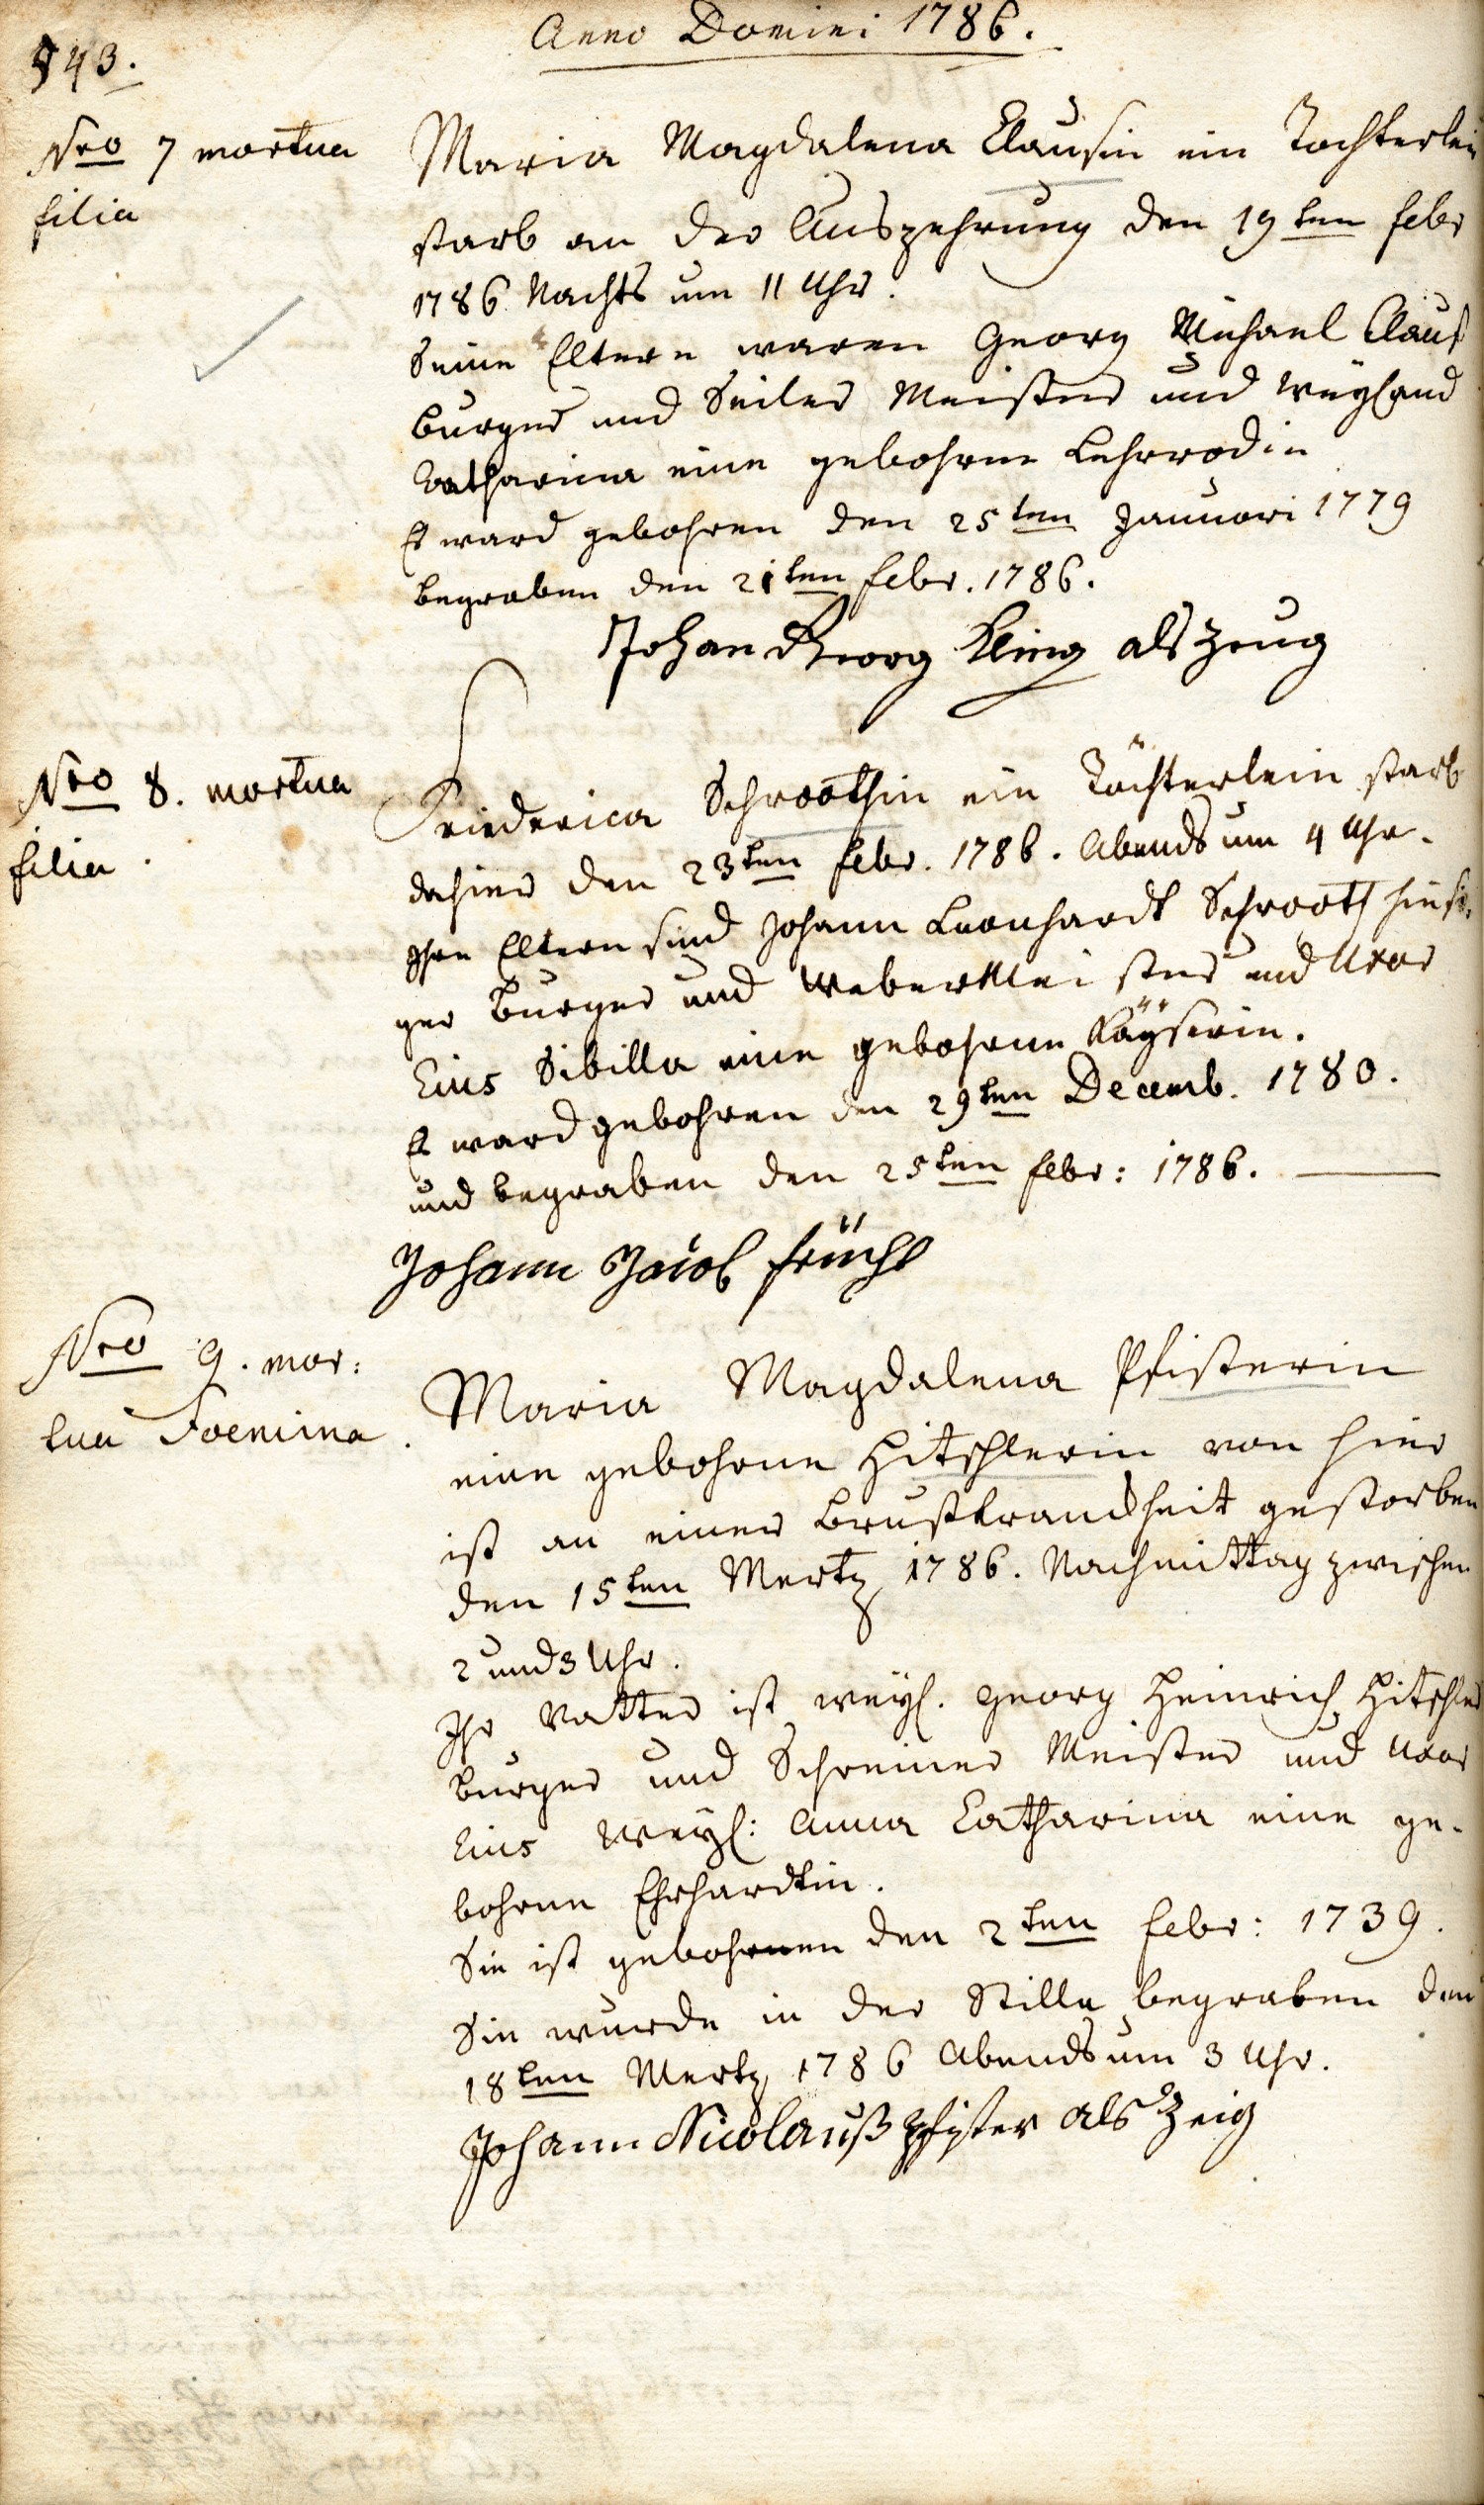 543.
Anno Domini 1786.
Nro 7 mortua
filia
Maria Magdalena Clausin ein Tochterlein
starb an der Auszehrung den 19ten febr
1786 Nachts um 11 Uhr.
Seine Eltern waren Georg Michael Clauß
burger und Seiler Meister und weyland
Catharina eine gebohrne Lehrrodin
Es ward gebohren den 25ten Januari 1779
begraben den 21ten febr. 1786.
Johan Georg Kling als zeug
Nro 8. mortua
filia.
Friederica Schroothin ein Töchterlein starb
dahier den 23ten febr. 1786. Abends um 4 Uhr.
Ihre Eltern sind Johann Leonhardt Schrooth hiesi-
ger Burger und Weber Meister und Uxor
Eius Sibilla eine gebohrne Käyserin.
Es ward gebohren den 29ten Decemb. 1780.
und begraben den 25ten febr: 1786.
Johann Jacob früche
Nro 9. mor:
tua Foemina.
Maria Magdalena Pfisterin
eine gebohrne Hitschlerin von hier
ist an einer Brustkrankheit gestorben
den 15ten Mertz 1786. Nachmittag zwischen
2 und 3 Uhr.
Ihr Vatter ist weyl. Georg Heinrich Hitschler
burger und Schreiner Meister und Uxor
Eius weyl: Anna Catharina eine ge-
bohrne Ehrhardtin.
Sie ist gebohrnen den 2ten febr: 1739.
Sie wurde in der Stille begraben den
18ten Mertz 1786 Abends um 3 Uhr.
Johann Nicolauß Pfister als Zeig